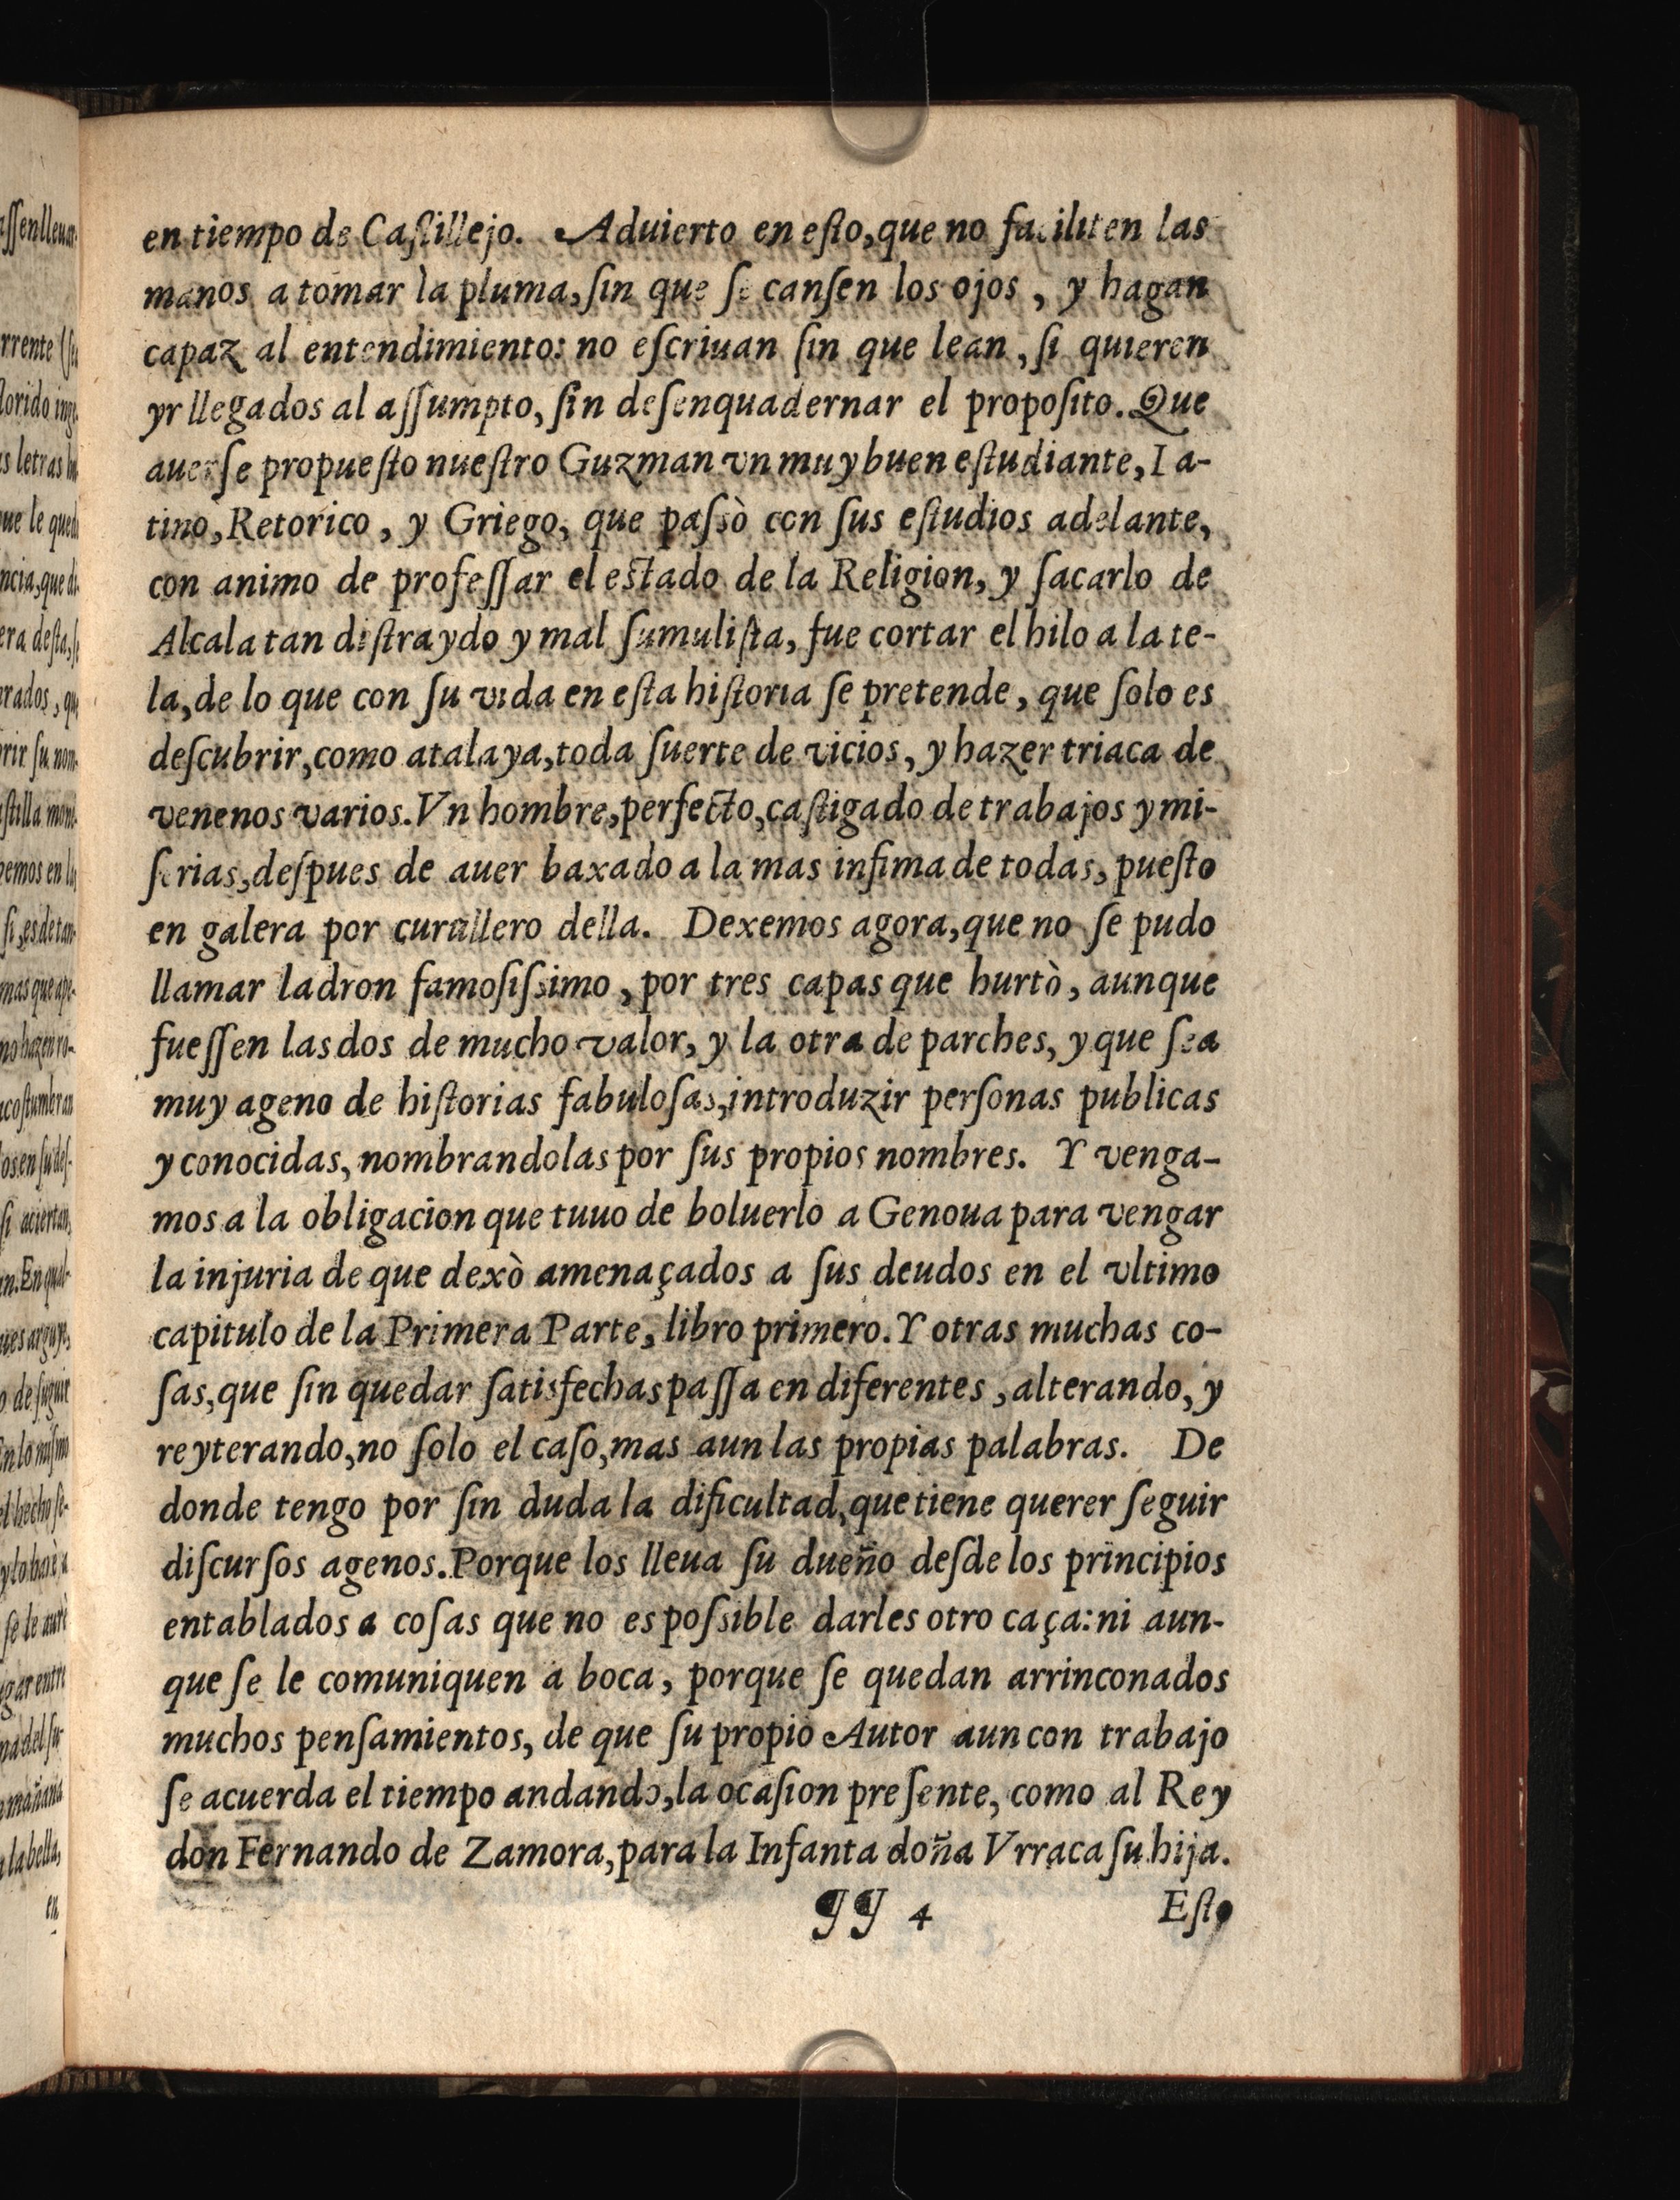 en tiempo de Caſtillejo. Aduierto en eſto, que no faciliten las
manos a tomar la pluma, ſin que ſe canſen los ojos, y hagan
capaz al entendimiento: no eſcriuan ſin que lean, ſi quieren
yr llegados al aſſumpto, ſin deſenquadernar el propoſito. Que
auerſe propueſto nueſtro Guzman vn muy buen eſtudiante, La-
tino, Retorico, y Griego, que paſsò con ſus eſtudios adelante,
con animo de profeſſar el eſtado de la Religion, y ſacarlo de
Alcala tan diſtraydo y mal ſumuliſta, fue cortar el hilo a la te-
la, de lo que con ſu vida en eſta hiſtoria ſe pretende, que ſolo es
deſcubrir, como atalaya, toda ſuerte de vicios, y hazer triaca de
venenos varios. Vn hombre, perfecto, caſtigado de trabajos y mi-
ſerias, deſpues de auer baxado a la mas infima de todas, pueſto
en galera por curullero della. Dexemos agora, que no ſe pudo
llamar ladron famoſiſsimo, por tres capas que hurtò, aunque
fueſſen las dos de mucho valor, y la otra de parches, y que ſea
muy ageno de hiſtorias fabuloſas, introduzir perſonas publicas
y conocidas, nombrandolas por ſus propios nombres. Y venga-
mos a la obligacion que tuuo de boluerlo a Genoua para vengar
la injuria de que dexò amenaçados a ſus deudos en el vltimo
capitulo de la Primera Parte, libro primero. Y otras muchas co-
ſas, que ſin quedar ſatisfechas paſſa en diferentes, alterando, y
reyterando, no ſolo el caſo, mas aun las propias palabras. De
donde tengo por ſin duda la dificultad, que tiene querer ſeguir
diſcurſos agenos. Porque los lleua ſu dueño deſde los principios
entablados a coſas que no es poſsible darles otro caça: ni aun-
que ſe le comuniquen a boca, porque ſe quedan arrinconados
muchos penſamientos, de que ſu propio Autor aun con trabajo
ſe acuerda el tiempo andando, la ocaſion preſente, como al Rey
don Fernando de Zamora, para la Infanta doña Vrraca ſu hija.
¶¶ 4 Eſto